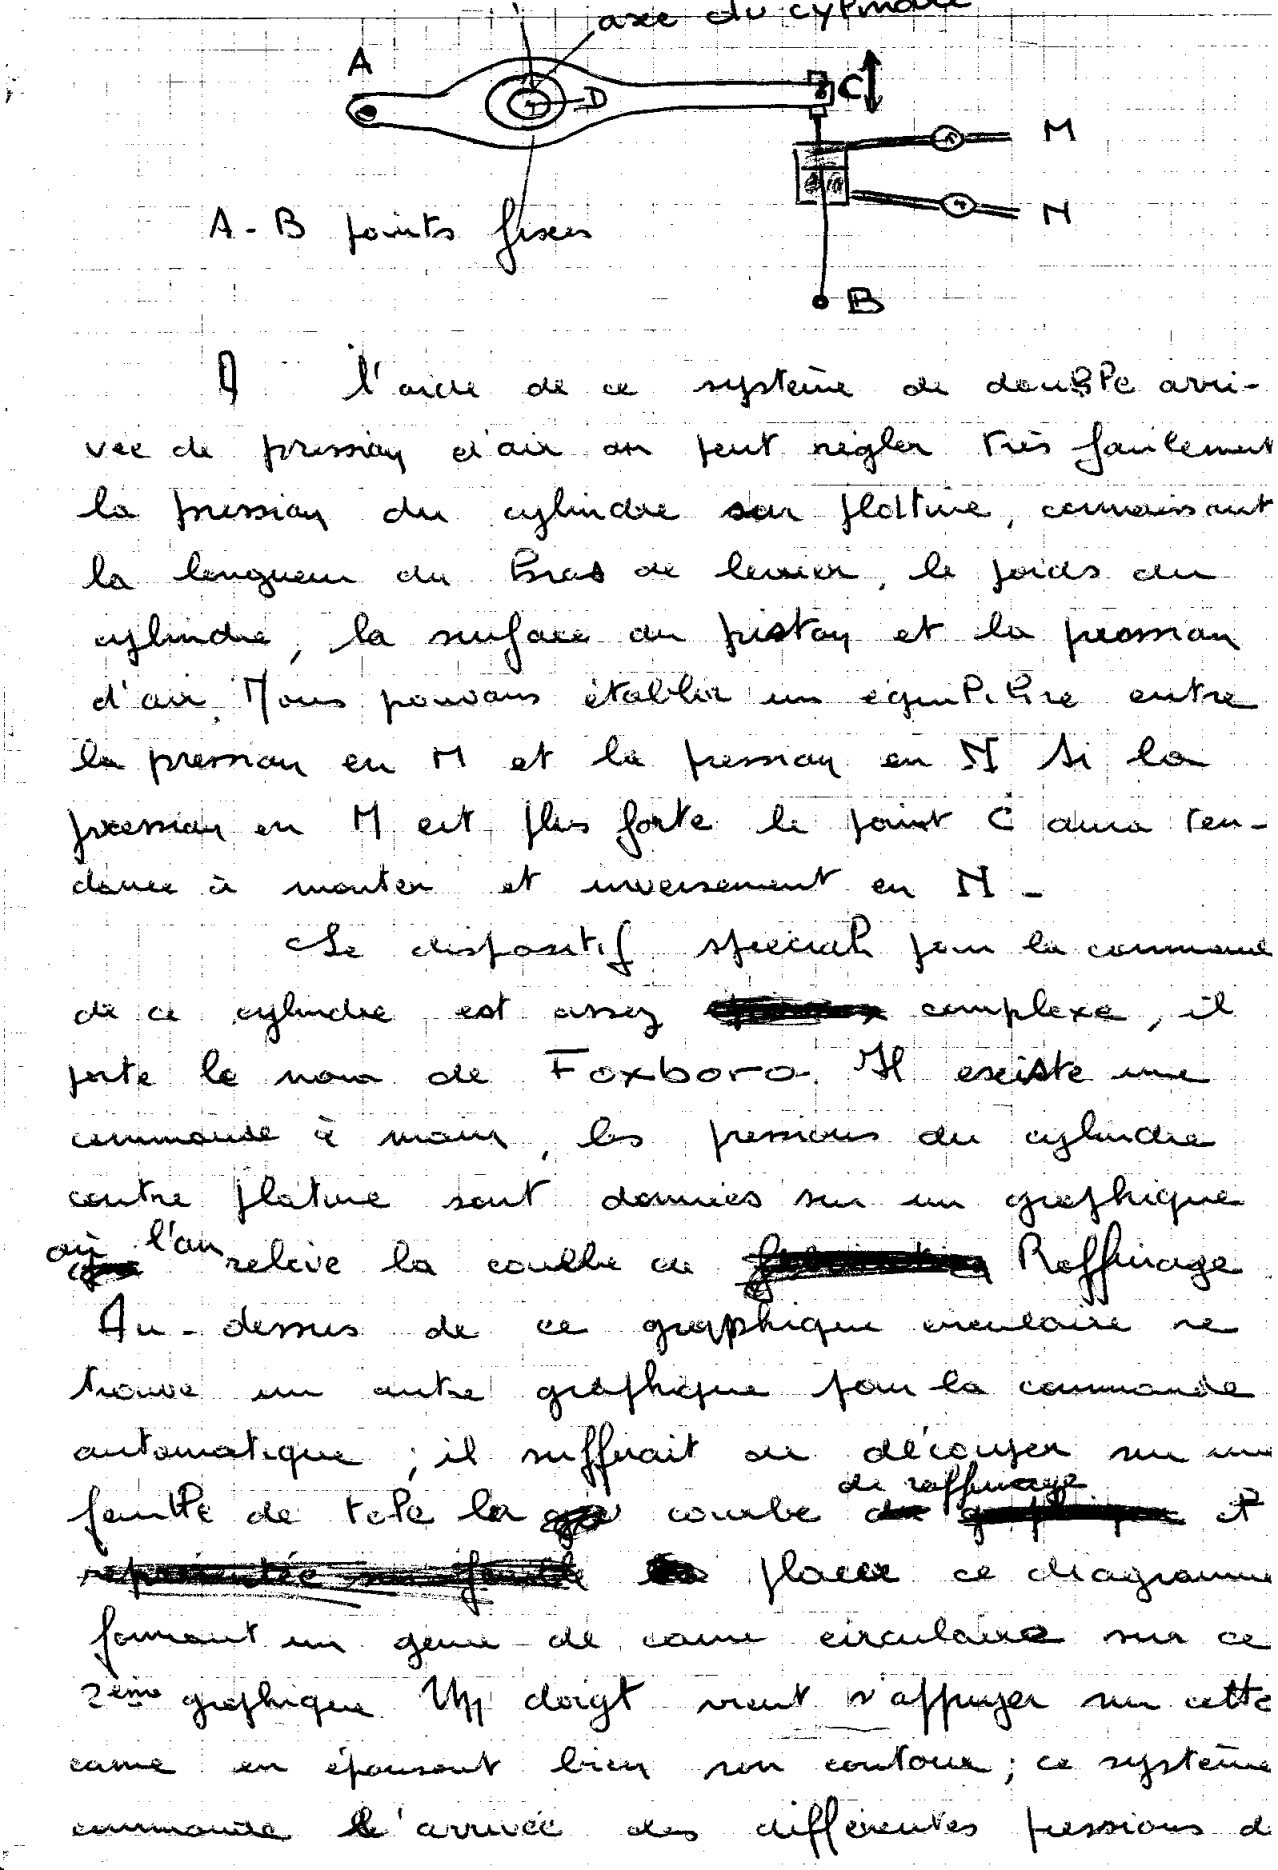 axe du cylindre
A
D
C
M
N
A - B points fixes
B
A l'aide de ce système de double arri-
vée de pression d'air on peut régler très facilement
la pression du cylindre sur platine, connaissant
la longueur du bras de levier, le poids du
cylindre, la surface du piston et la pression
d'air. Nous pouvons établir un équilibre entre
la pression en M et la pression en N Si la
pression en M est plus forte le point C aura ten-
dance à monter et inversement en N -
Le dispositif spécial pour la command
de ce cylindre est assez complexe, il
porte le nom de Foxboro. Il existe une
commande à main, les pressions du cylindre
contre platine sont données sur un graphique
où l'on relève la courbe de Raffinage.
Au-dessus de ce graphique circulaire se
trouve un autre graphique pour la commande
automatique ; il suffirait de découper sur une
feuille de tole la courbe de raffinage et
placer ce diagramme
formant un genre de came circulaire sur ce
2ème graphique Un doigt vient s'appuyer sur cette
came en épousant bien son contour ; ce système
commande l'arrivée des différentes pressions d